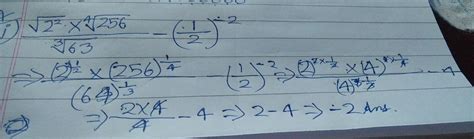 √2² × ⁴√256 / ³√63 − (1/2)⁻²
⇒ (2)^½ × (256)^¼ / (64)^⅓ − (1/2)⁻² ⇒ (2)^2×½ × (4)^4×¼ / (4)^3×⅓ − 4
⇒ 2×4 / 4 − 4 ⇒ 2−4 ⇒ −2 Ans.